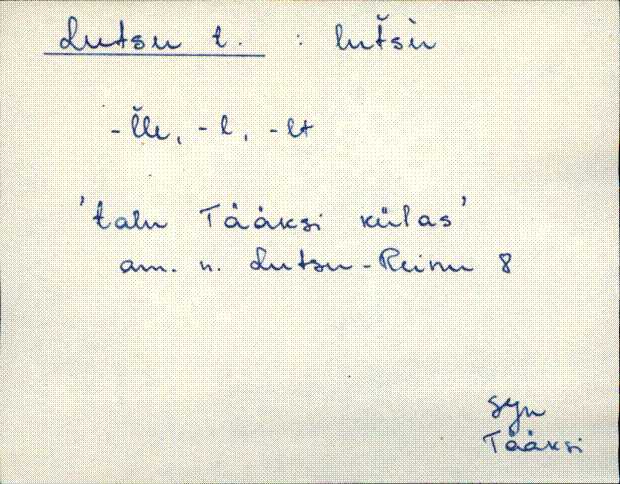 Lutsu t. : lut̆s̀ù
-l̆le, -l, -lt
'talu Tääksi külas'
am. n. Lutsu-Reinu 8
syn
Tääksi